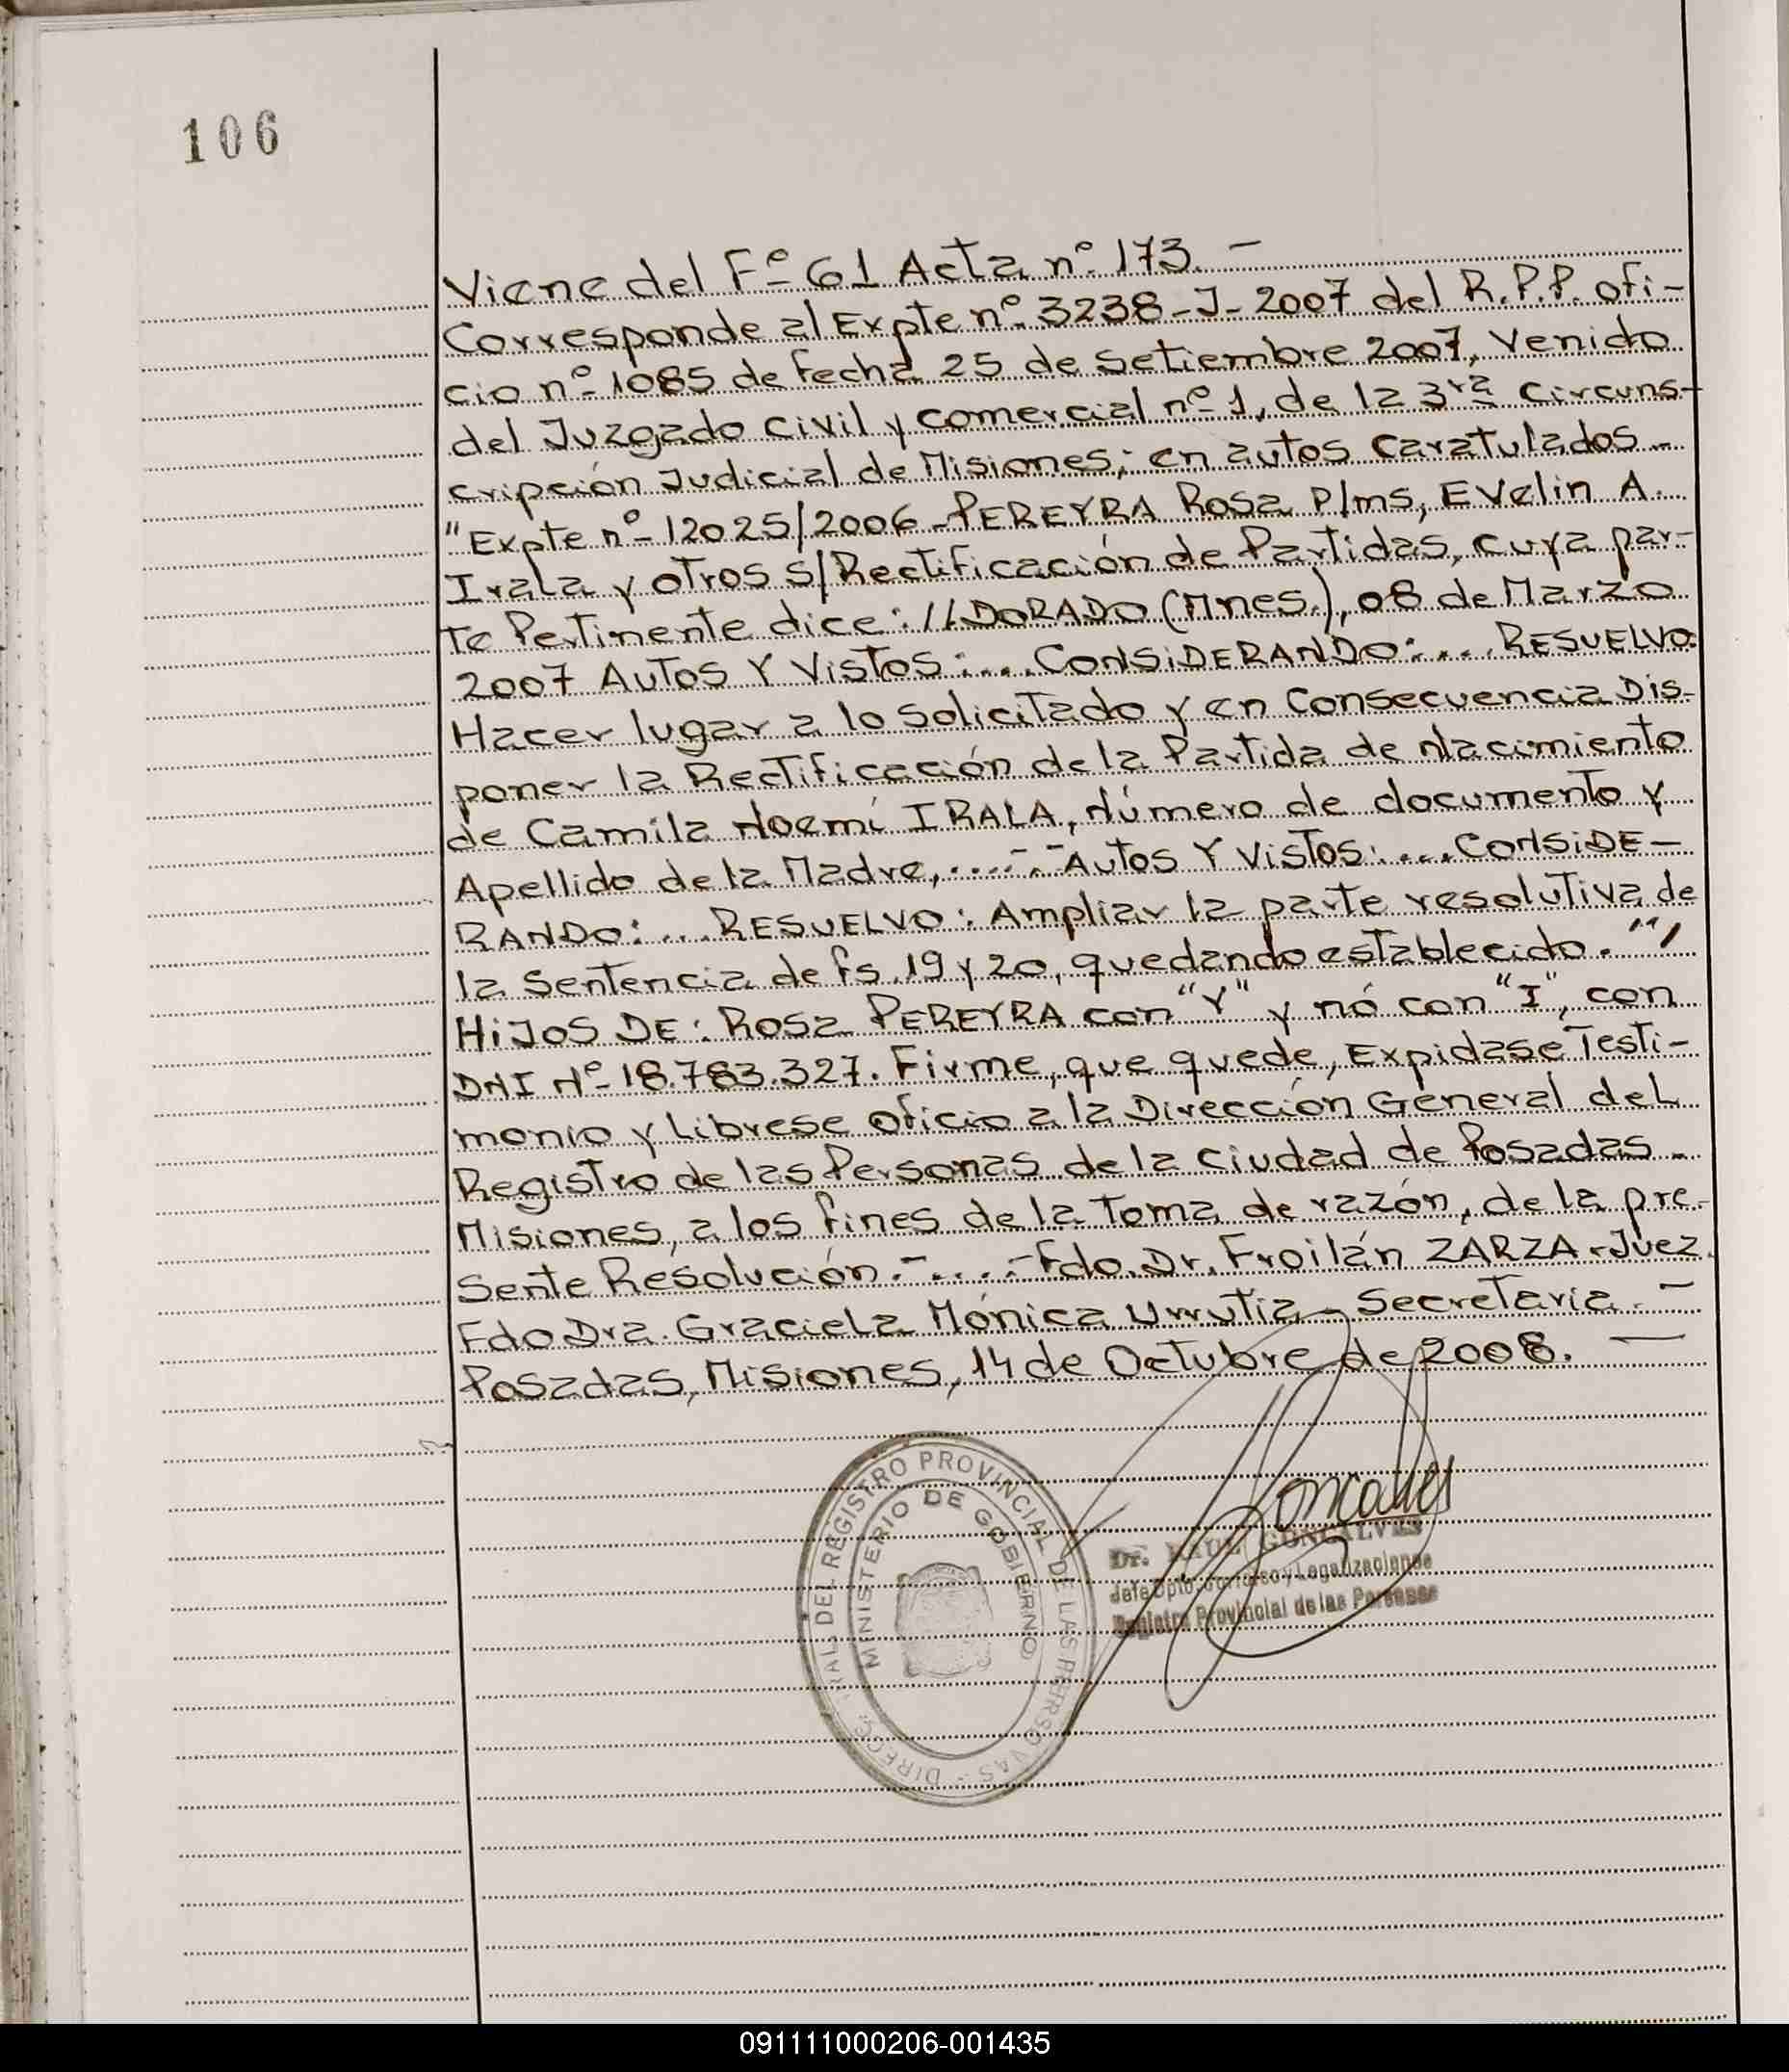 106
Viene del Fº 61 Acta nº 173. —
Corresponde al Expte nº 3238-J-2007 del R.P.P. ofi-
cio nº 1085 de fecha 25 de Setiembre 2007, Venido
del Juzgado Civil y comercial nº 1, de la 3ra Circuns-
cripción Judicial de Misiones; en autos Caratulados -
"Expte nº 12025/2006 - PEREYRA Rosa P/ms, Evelin A.
Irala y otros s/Rectificación de Partidas, cuya par-
te Pertinente dice: //DORADO (Mnes.), 08 de Marzo
2007 AUTOS Y VISTOS:... CONSIDERANDO:.... RESUELVO:
Hacer lugar a lo solicitado y en Consecuencia Dis-
poner la Rectificación de la Partida de Nacimiento
de Camila Noemí IRALA, Número de documento y
Apellido de la Madre,....-.- Autos Y Vistos:.... CONSIDE-
RANDO:... RESUELVO: Ampliar la parte resolutiva de
la Sentencia de fs. 19 y 20, quedando establecido. ""
HIJOS DE: Rosa PEREYRA con "Y" y nó con "I", con
DNI Nº 18.783.327. Firme, que quede, Expidase Testi-
monio y Librese Oficio a la Dirección General del
Registro de las Personas de la Ciudad de Posadas -
Misiones, a los fines de la Toma de razón, de la pre-
sente Resolución.-....- Fdo. Dr. Froilán ZARZA - Juez.
Fdo Dra. Graciela Mónica Urrutia - Secretaria. —
Posadas, Misiones, 14 de Octubre de 2008. —
DEL REGISTRO PROVINCIAL DE LAS
MINISTERIO DE GOBIERNO
Goncalves
Dr. RAUL GONCALVES
Jefe Dpto. Jurídico y Legalizaciones
Registro Provincial de las Personas
091111000206-001435